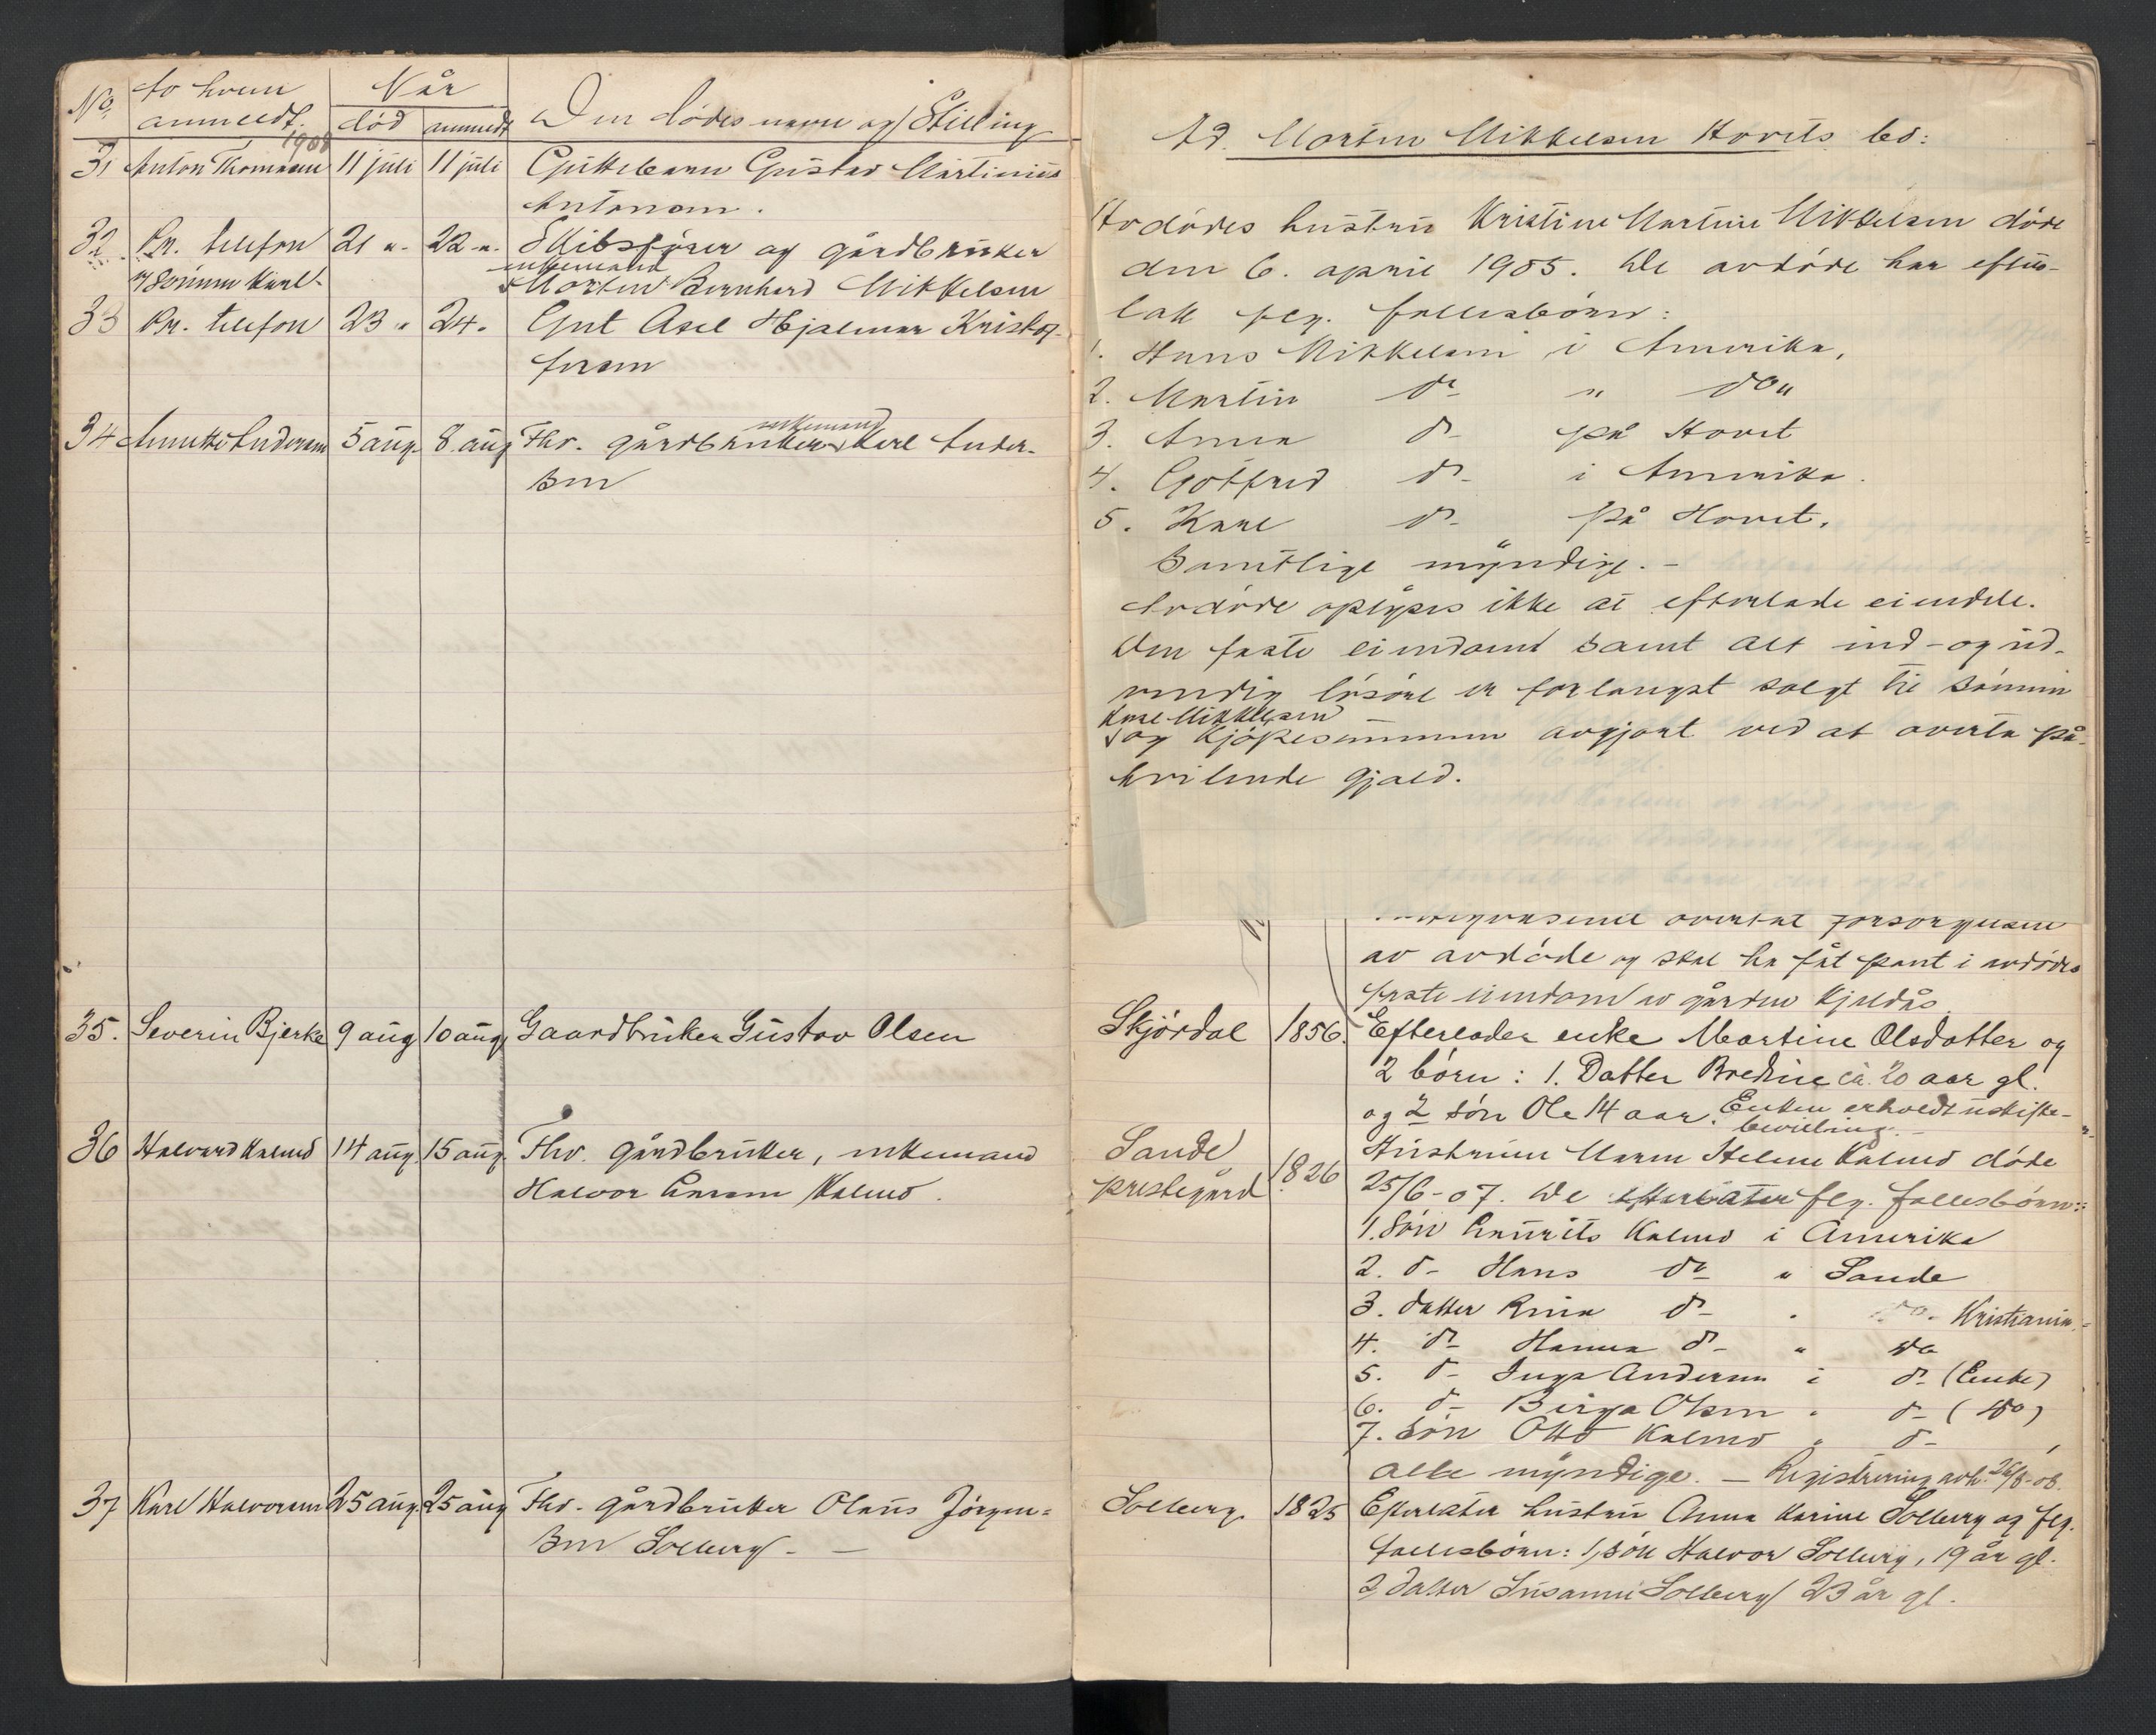 No. Av hvem Når Den dödes navn og Stilling
anmeldt. död anmeldt
1908
31 Anton Thomasen 11 juli 11 juli Guttebarn Gustav Martinius
Antonsen.
32. Pr. telefon 21 " 22 " Skibsförer og gårdbruker
av Sönnen Karl enkemand
Morten Bernhard Mikkelsen
33 Pr. telefon 23 " 24 " Gut Axel Hjalmar Kristof-
fersen
34 Annette Andersen 5 aug. 8 aug Fhv. gårdbruker enkemand Karl Ander-
sen
35. Severin Bjerke 9 aug 10 aug. Gaardbruker Gustav Olsen
36 Halvard Kalmo 14 aug. 15 aug. Fhv. gårdbruker, enkemand
Halvor Larsen Kalmo.
37 Karl Halvorsen 25 aug. 25 aug Fhv. gårdbruker Olaus Jörgen=
sen Solberg. —
Ad. Morten Mikkelsen Hovets bo:
Avdödes hustru Kristine Martine Mikkelsen döde
den 6. april 1905. De avdöde har efter-
latt flg. fellesbörn:
1. Hans Mikkelsen i Amerika,
2. Martin do " do "
3. Anna do på Hovet
4. Gotfred do i Amerika.
5. Karl do på Hovet.
Samtlige myndige. –
Avdöde oplyses ikke at efterlade eiendele.
Den faste eiendom samt alt ind- og ud-
vendig lösöre er forlængst solgt til sönnen
Karl Mikkelsen
og kjöpesummen avgjort ved at overta på-
hvilende gjæld.
overtat forsörgelsen
av avdöde og skal ha fåt pant i avdödes
faste eiendom av gården Kjeldås.
Skjördal 1856. Efterlader enke Martine Olsdatter og
2 börn: 1. Datter Bredine ca. 20 aar gl.
og 2 sön Ole 14 aar. Enken erholdt uskifte-
bevilling. –
Sande
prestegård 1826. Hustruen Maren Helene Kalmo döde
25/6-07. De efterlater flg. fellesbörn:
1. Sön Laurits Kalmo i Amerika
2. do Hans do " Sande
3. datter Rina do " do. Kristiania.
4. do Hanna do " do
5. do Inga Andersen i do (Enke)
6. do Birga Olsen " do (do)
7. Sön Otto Kalmo " do
alle myndige. — Registrering avh. 26/8-08.
Solberg. 1825 Efterlater hustru Anna Karine Solberg og flg.
fellesbörn: 1, sön Halvor Solberg, 19 år gl.
2, datter Susanne Solberg 23 år gl.